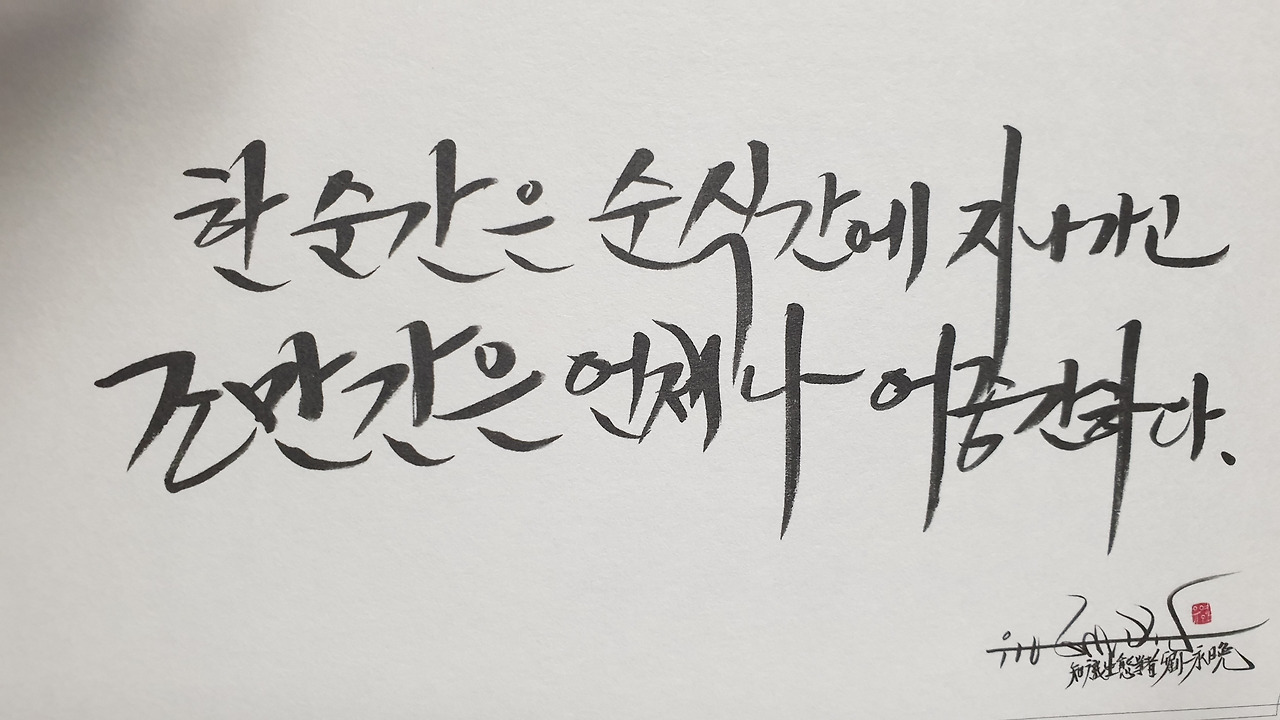 한 순간은 순식간에 지나가고
조만간은 언제나 어중간하다.
知識生態學者 劉永晩